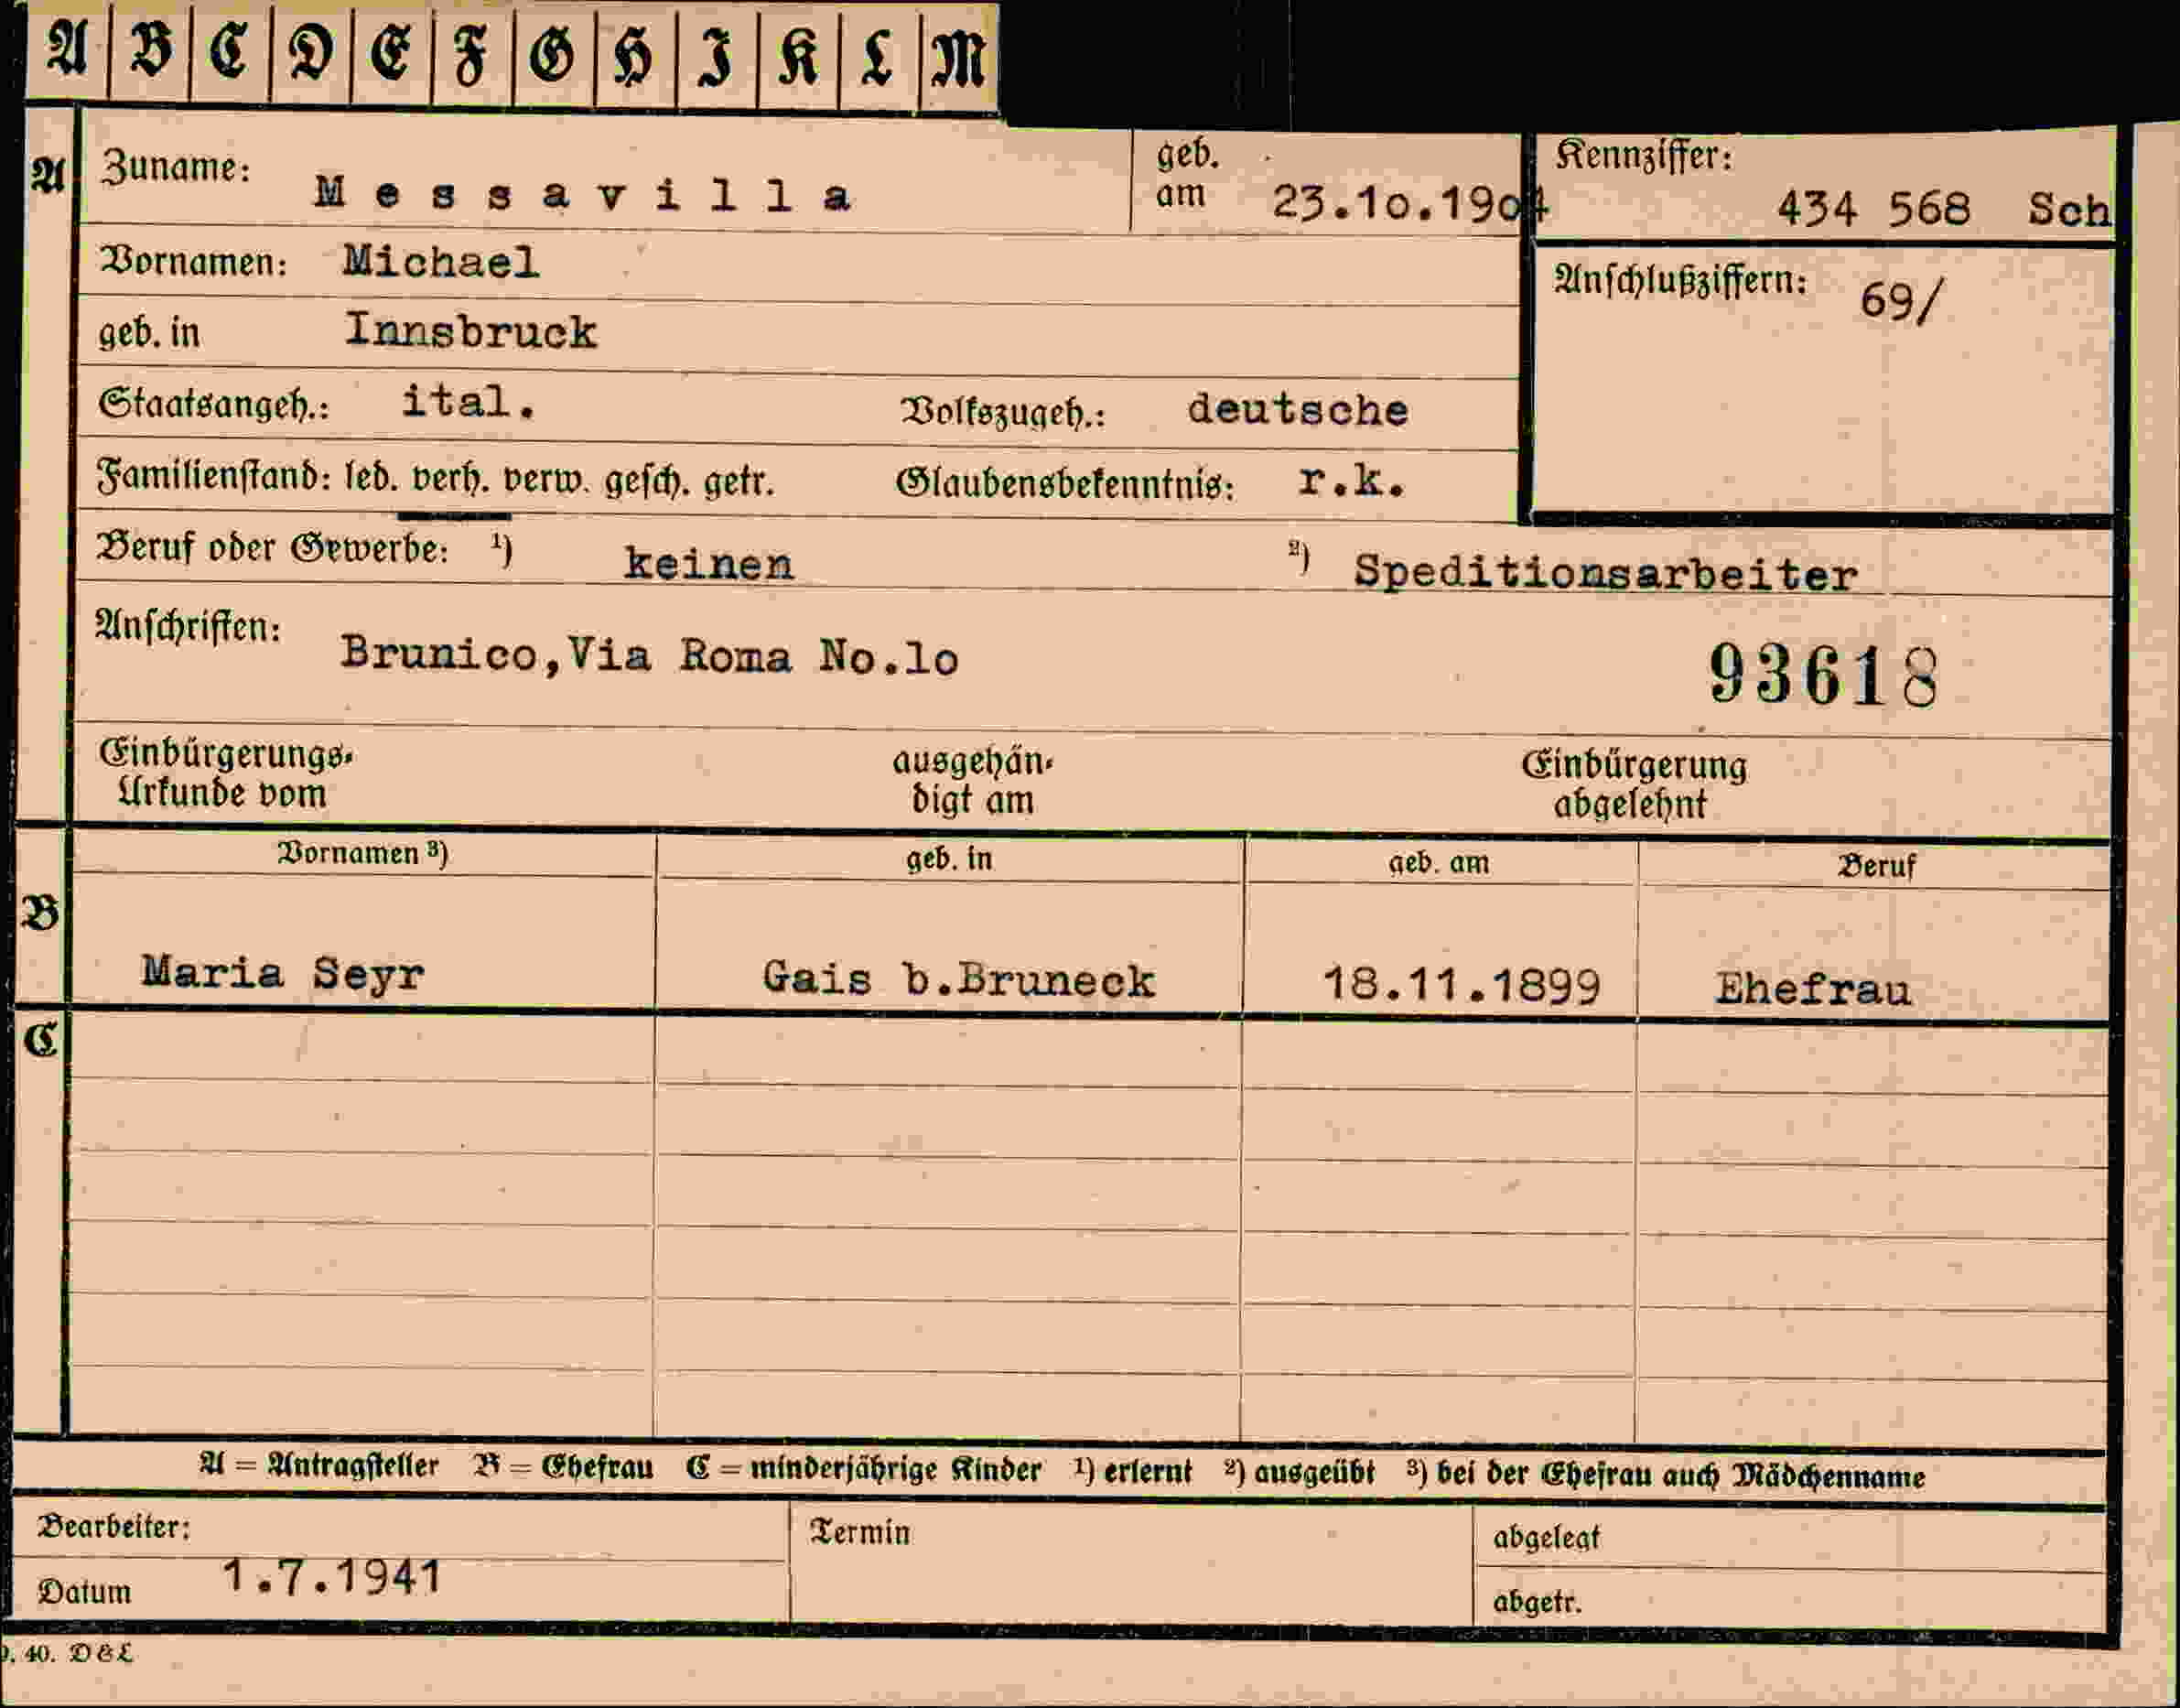 A B C D E F G H I K L M
A Zuname: Messavilla geb. am 23.10.1904 Kennziffer: 434 568 Sch
Vornamen: Michael
geb. in Innsbruck Anschlußziffern: 69/
Staatsangeh.: ital. Volkszugeh.: deutsche
Familienstand: led. verh. verw. gesch. getr. Glaubensbekenntnis: r.k.
Beruf oder Gewerbe: 1) keinen 2) Speditionsarbeiter
Anschriften: Brunico,Via Roma No.10 93618
Einbürgerungs- ausgehän- Einbürgerung
Urkunde vom digt am abgelehnt
Vornamen 3) geb. in geb. am Beruf
B Maria Seyr Gais b.Bruneck 18.11.1899 Ehefrau
C
A = Antragsteller B = Ehefrau C = minderjährige Kinder 1) erlernt 2) ausgeübt 3) bei der Ehefrau auch Mädchenname
Bearbeiter: Termin abgelegt
Datum 1.7.1941 abgetr.
40. D & L